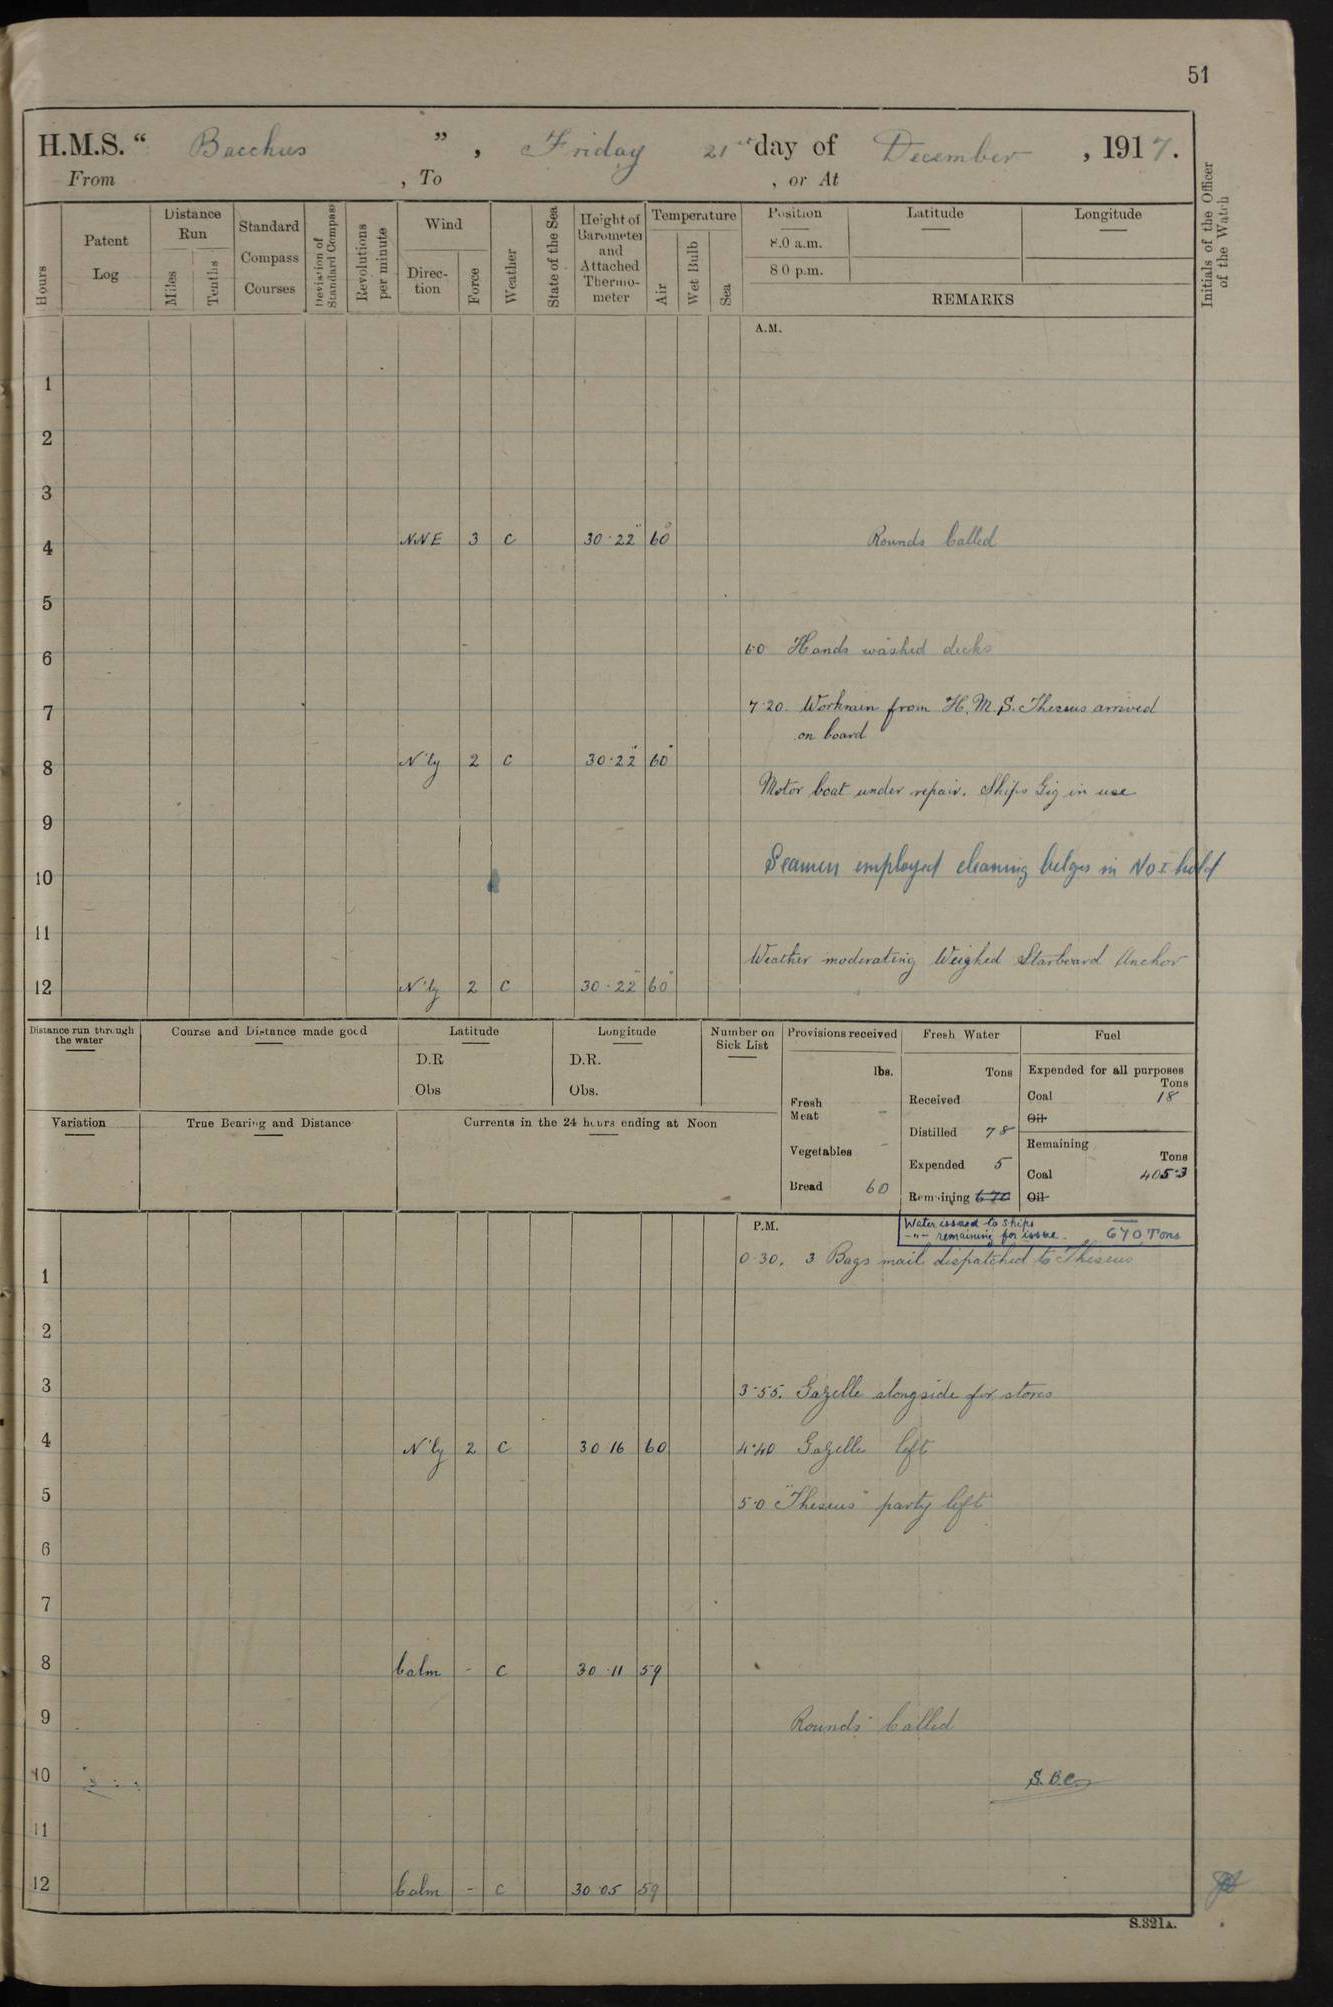 51
H.M.S. “ Bacchus ” , Friday 21st day of December , 1917.
From , To , or At
Hours
Patent Log
Distance Run
Miles
Tenths
Standard Compass Courses
Deviation of Standard Compass
Revolutions per minute
Wind
Direction
Force
Weather
State of the Sea
Height of Barometer and Attached Thermometer
Temperature
Air
Wet Bulb
Sea
Position Latitude Longitude
8.0 a.m.
8 0 p.m.
REMARKS
Initials of the Officer of the Watch
A.M.
1
2
3
4 NNE 3 c 30·22" 60° Rounds Called
5
6 6·0 Hands washed decks
7 7·20. Workmen from H.M.S. Theseus arrived
on board
8 N'ly 2 c 30·22" 60°
Motor boat under repair. Ships Gig in use
9
10 Seamen employed cleaning belges in No I hold
11
Weather moderating Weighed Starboard Anchor
12 N'ly 2 c 30·22" 60°
Distance run through the water
Course and Distance made good
Latitude
D.R
Obs
Longitude
D.R.
Obs.
Number on Sick List
Provisions received
lbs.
Fresh Meat -
Vegetables -
Bread 60
Fresh Water
Tons
Received
Distilled 78
Expended 5
Remaining 670
Fuel
Expended for all purposes
Tons
Coal 18
Oil
Remaining
Tons
Coal 4053
Oil
Variation
True Bearing and Distance
Currents in the 24 hours ending at Noon
P.M.
Water issued to ships —
-"- remaining for issue. 670 Tons
0·30. 3 Bags mail dispatched to Theseus
1
2
3 3·55. Gazelle alongside for stores
4 N'ly 2 c 30 16 60 4·40 Gazelle left
5 5·0 "Theseus" party left
6
7
8 Calm - c 30·11 59
9 Rounds Called
10 S.B.C.
11
12 Calm - c 30 05 59
S.321A.